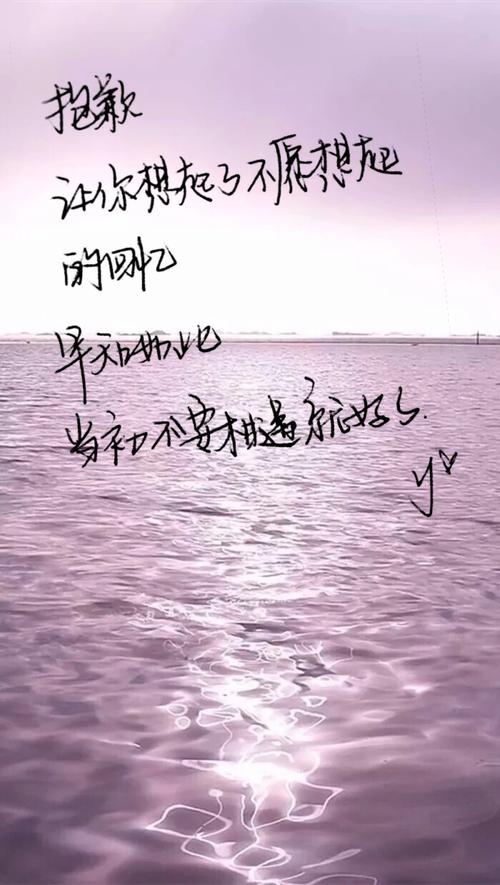 抱歉
让你想起了不愿想起
的回忆
早知如此
当初不要相遇就好了.
y♡